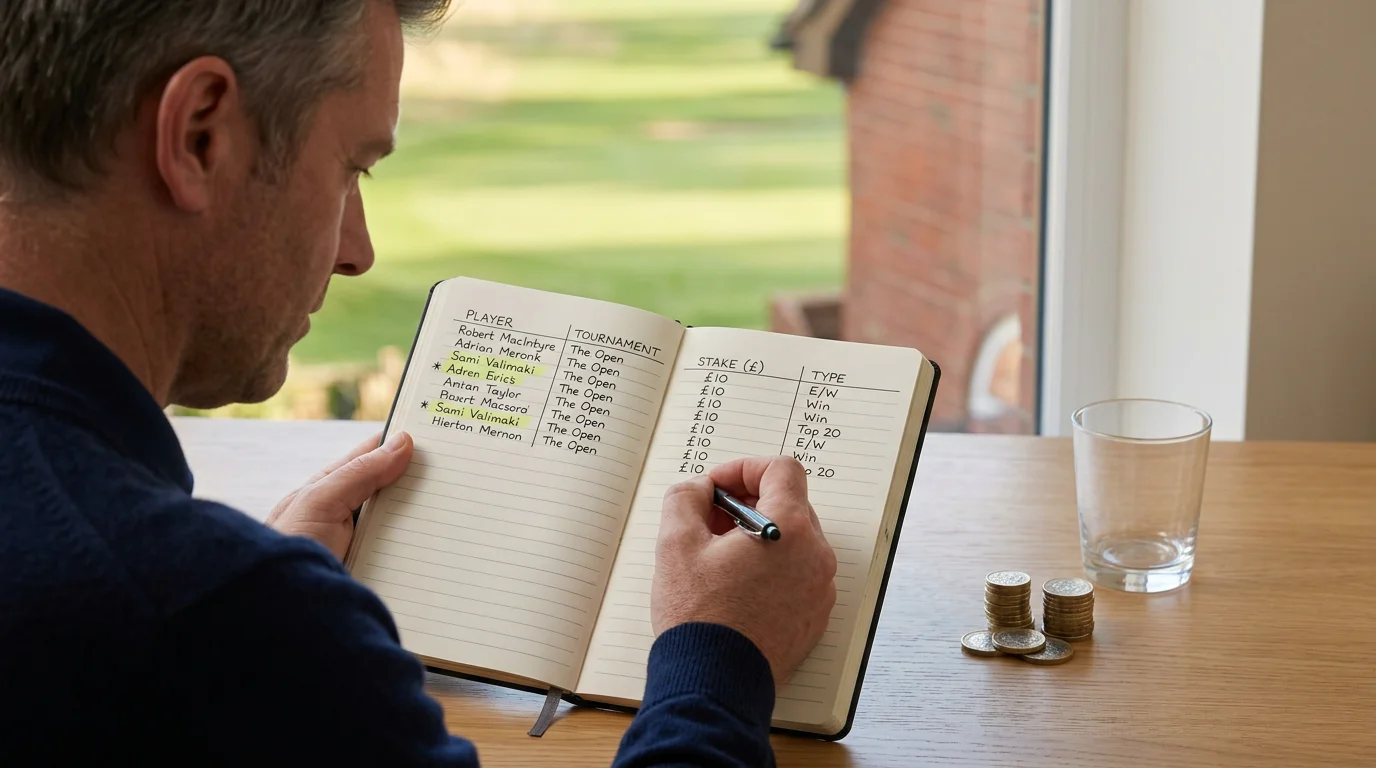 PLAYER TOURNAMENT
Robert MacIntyre The Open
Adrian Meronk The Open
Sami Valimaki The Open
* Adren Erics The Open
Antan Taylor The Open
Macsoro The Open
* Sami Valimaki The Open
Hierton Mernon The Open
STAKE (£) TYPE
£10 E/W
£10 Win
£10 Win
£10 Top 20
£10 E/W
£10 Win
£10 20
£10